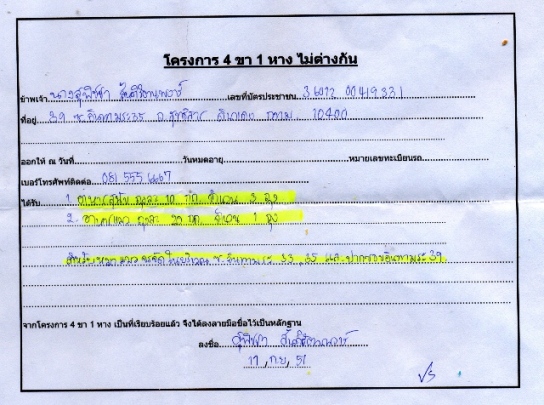 โครงการ 4 ขา 1 หาง ไม่ต่างกัน
ข้าพเจ้า นางสุพิชชา เลขที่บัตรประชาชน 36012 00419331
ที่อยู่ 39 ซ.อินทามระ35 ถ.สุทธิสาร ดินแดง กทม. 10400
ออกให้ ณ วันที่ วันหมดอายุ หมายเลขทะเบียนรถ
เบอร์โทรศัพท์ติดต่อ 081 555 6667
ได้รับ 1. อาหารสุนัข ถุงละ 10 กก. จำนวน 3 ถุง
2. อาหารแมว ถุงละ 20 กก. จำนวน 1 ถุง
สำหรับหมาแมวจรจัดในบริเวณ ซ. อินทามระ 33, 35 และ ปากซอยอินทามระ 39
จากโครงการ 4 ขา 1 หาง เป็นที่เรียบร้อยแล้ว จึงได้ลงลายมือชื่อไว้เป็นหลักฐาน
ลงชื่อ สุพิชชา
17 กย. 51